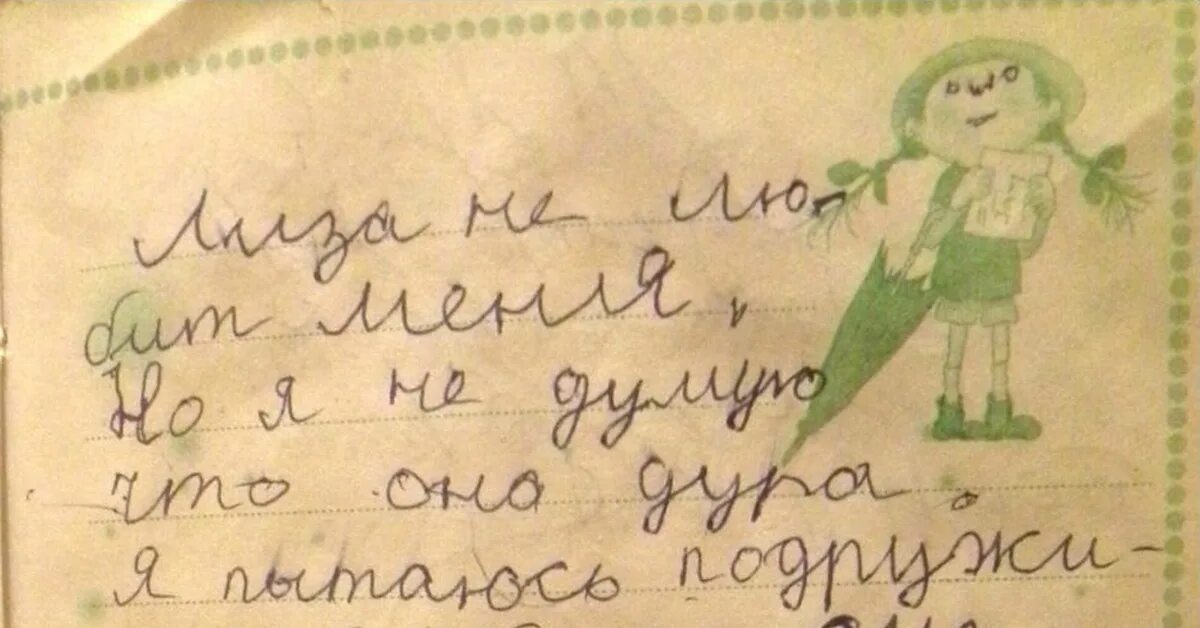 Лиза не лю-
бит меня,
Но я не думую
что она дура.
я пытаюсь подружи-